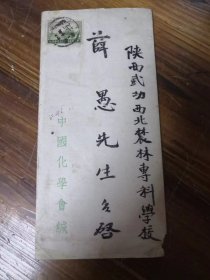 陕西武功西北农林专科學校
薛愚先生台啓
中國化學會緘